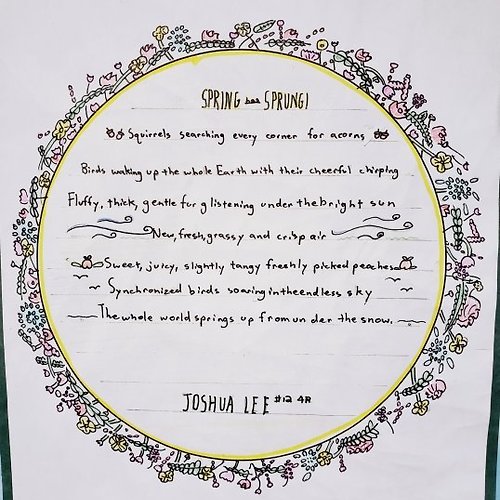 SPRING has SPRUNG!
Squirrels searching every corner for acorns
Birds waking up the whole Earth with their cheerful chirping
Fluffy, thick, gentle fur glistening under the bright sun
New, fresh, grassy and crisp air
Sweet, juicy, slightly tangy freshly picked peaches
Synchronized birds soaring in the endless sky
The whole world springs up from under the snow.
JOSHUA LEE #12 4B